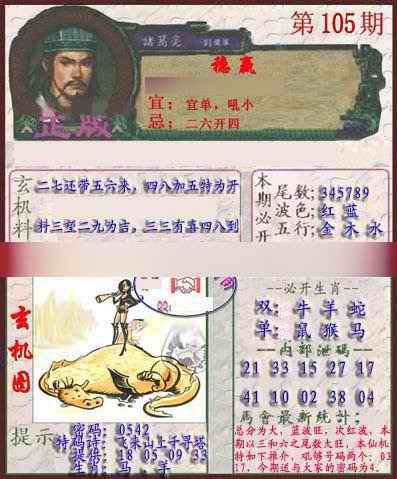 第105期
諸葛亮
稳赢
宜：宜单，吼小
忌：二六开四
正版
玄机料
二七还带五六来，四八加五特为开
料三望二九为吉，三三有喜四八到
本期必开
尾数；345789
波色；红 蓝
五行；金 木 水
玄机图
--必开生肖--
双：牛 羊 蛇
单：鼠 猴 马
--内部泄码--
21 33 15 27 17
41 10 02 38 04
馬會最新統計；
总分为大，蓝波旺，次红波，本
期以三和六之尾数大旺，本仙机
特如下推介，吼够号码两个：03
17，今期送与大家的密码为4.
提示
密码：0542
特码诗：飞来山上千寻塔
提伤：18 05 09 33
生肖：马，羊